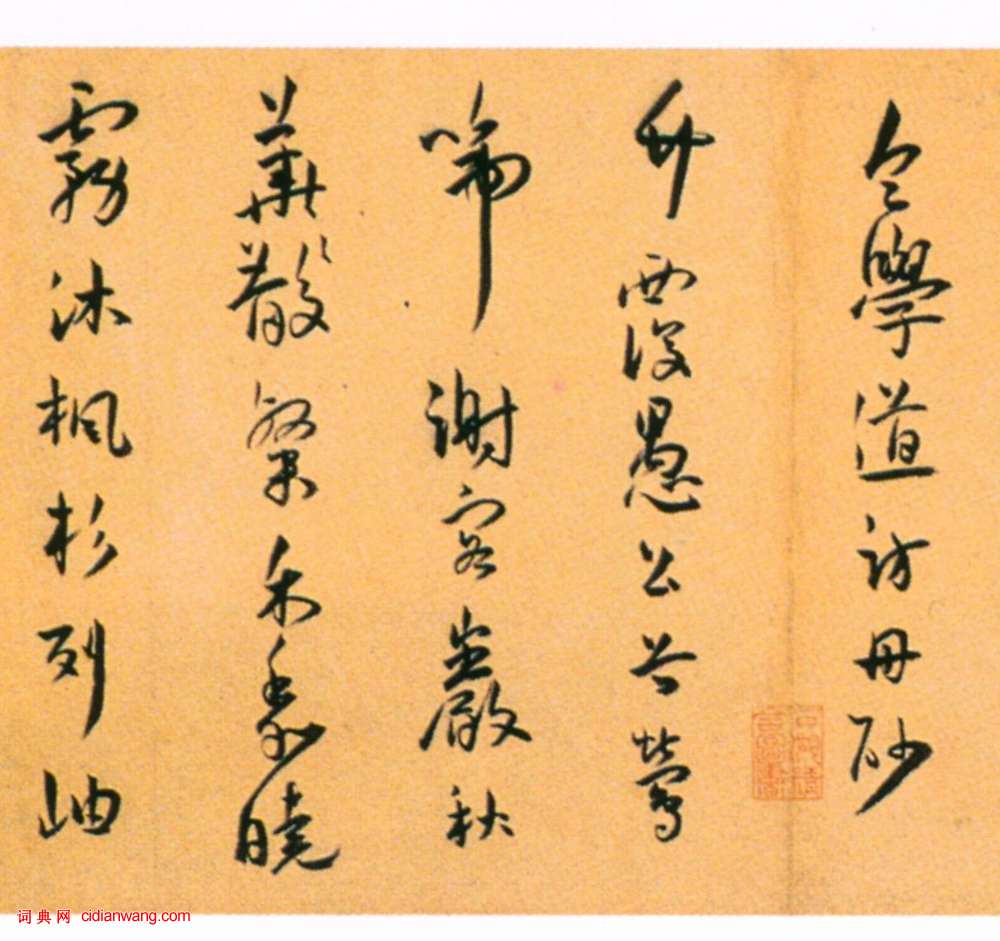 令學道訪丹砂
竹西復愚公谷鶯
啼謝客巖秋
英散繁禾黍曉
霧沐楓杉列岫
词典网 cidianwang.com